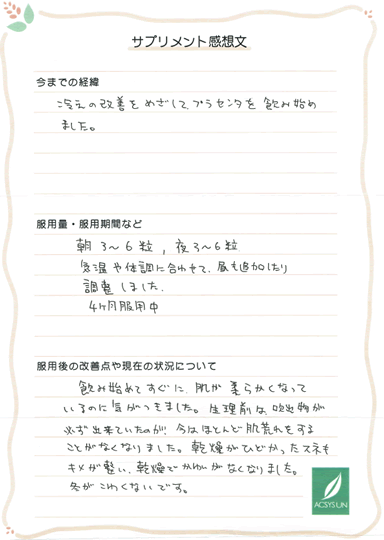 サプリメント感想文
今までの経緯
冷えの改善をめざして、プラセンタを飲み始め
ました。
服用量・服用期間など
朝 3〜6粒 , 夜 3〜6粒
気温や体調に合わせて、昼も追加したり
調整しました。
4ヶ月服用中
服用後の改善点や現在の状況について
飲み始めてすぐに、肌が柔らかくなって
いるのに気がつきました。生理前は、吹出物が
必ず出来ていたのが、今はほとんど肌荒れをする
ことがなくなりました。乾燥がひどかったスネも
キメが整い、乾燥でかゆいがなくなりました。
冬がこわくないです。
ACSYS.UN